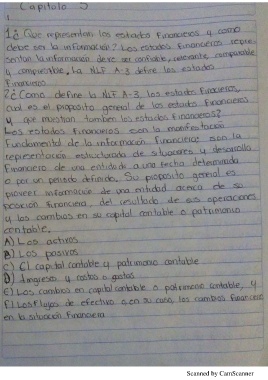 Capitulo 3
1¿ Que representan los estados financieros y como
debe ser la información? Los estados financieros repre-
sentan la información debe ser confiable, relevante, comparable
y comprensible, La NIF A-3 define los estados
financieros
2¿ Como define la NIF A-3, los estados financieros,
cual es el proposito general de los estados financieros
y que muestran tambien los estados financieros?
Los estados financieros son la manifestación
fundamental de la información financiera son la
representación estructurada de situaciones y desarrollo
financiero de una entidad a una fecha determinada
o por un periodo definido. Su proposito general es
proveer información de una entidad acerca de su
posición financiera, del resultado de sus operaciones
y los cambios en su capital contable o patrimonio
contable
A) Los activos
B) Los pasivos
C) El capital contable y patrimonio contable
D) Ingresos y costos o gastos
E) Los cambios en capital contable o patrimonio contable, y
F) Los flujos de efectivo o en su caso, los cambios financieros
en la situación financiera
Scanned by CamScanner